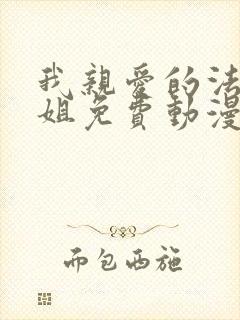 我親愛的法
姐免費動漫
而包西施